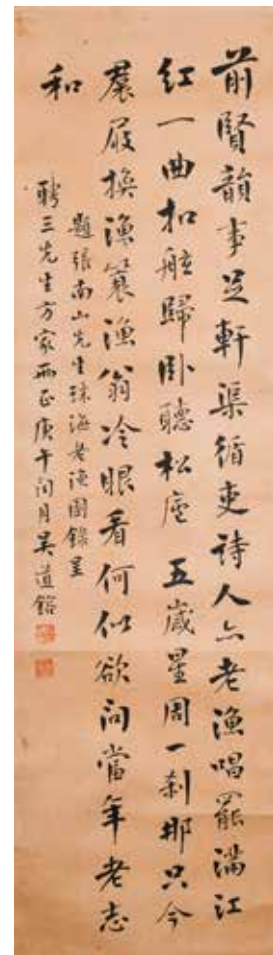 前賢韻事足軒渠循吏詩人亦老漁唱罷滿江
紅一曲扣舷歸臥聽松廬 五歲星周一剎那只今
裠屐換漁蓑漁翁冷眼看何似欲問當年老志
和
題張南山先生珠海老漁圖錄呈
聘三先生方家兩正庚午閏月吳道鎔